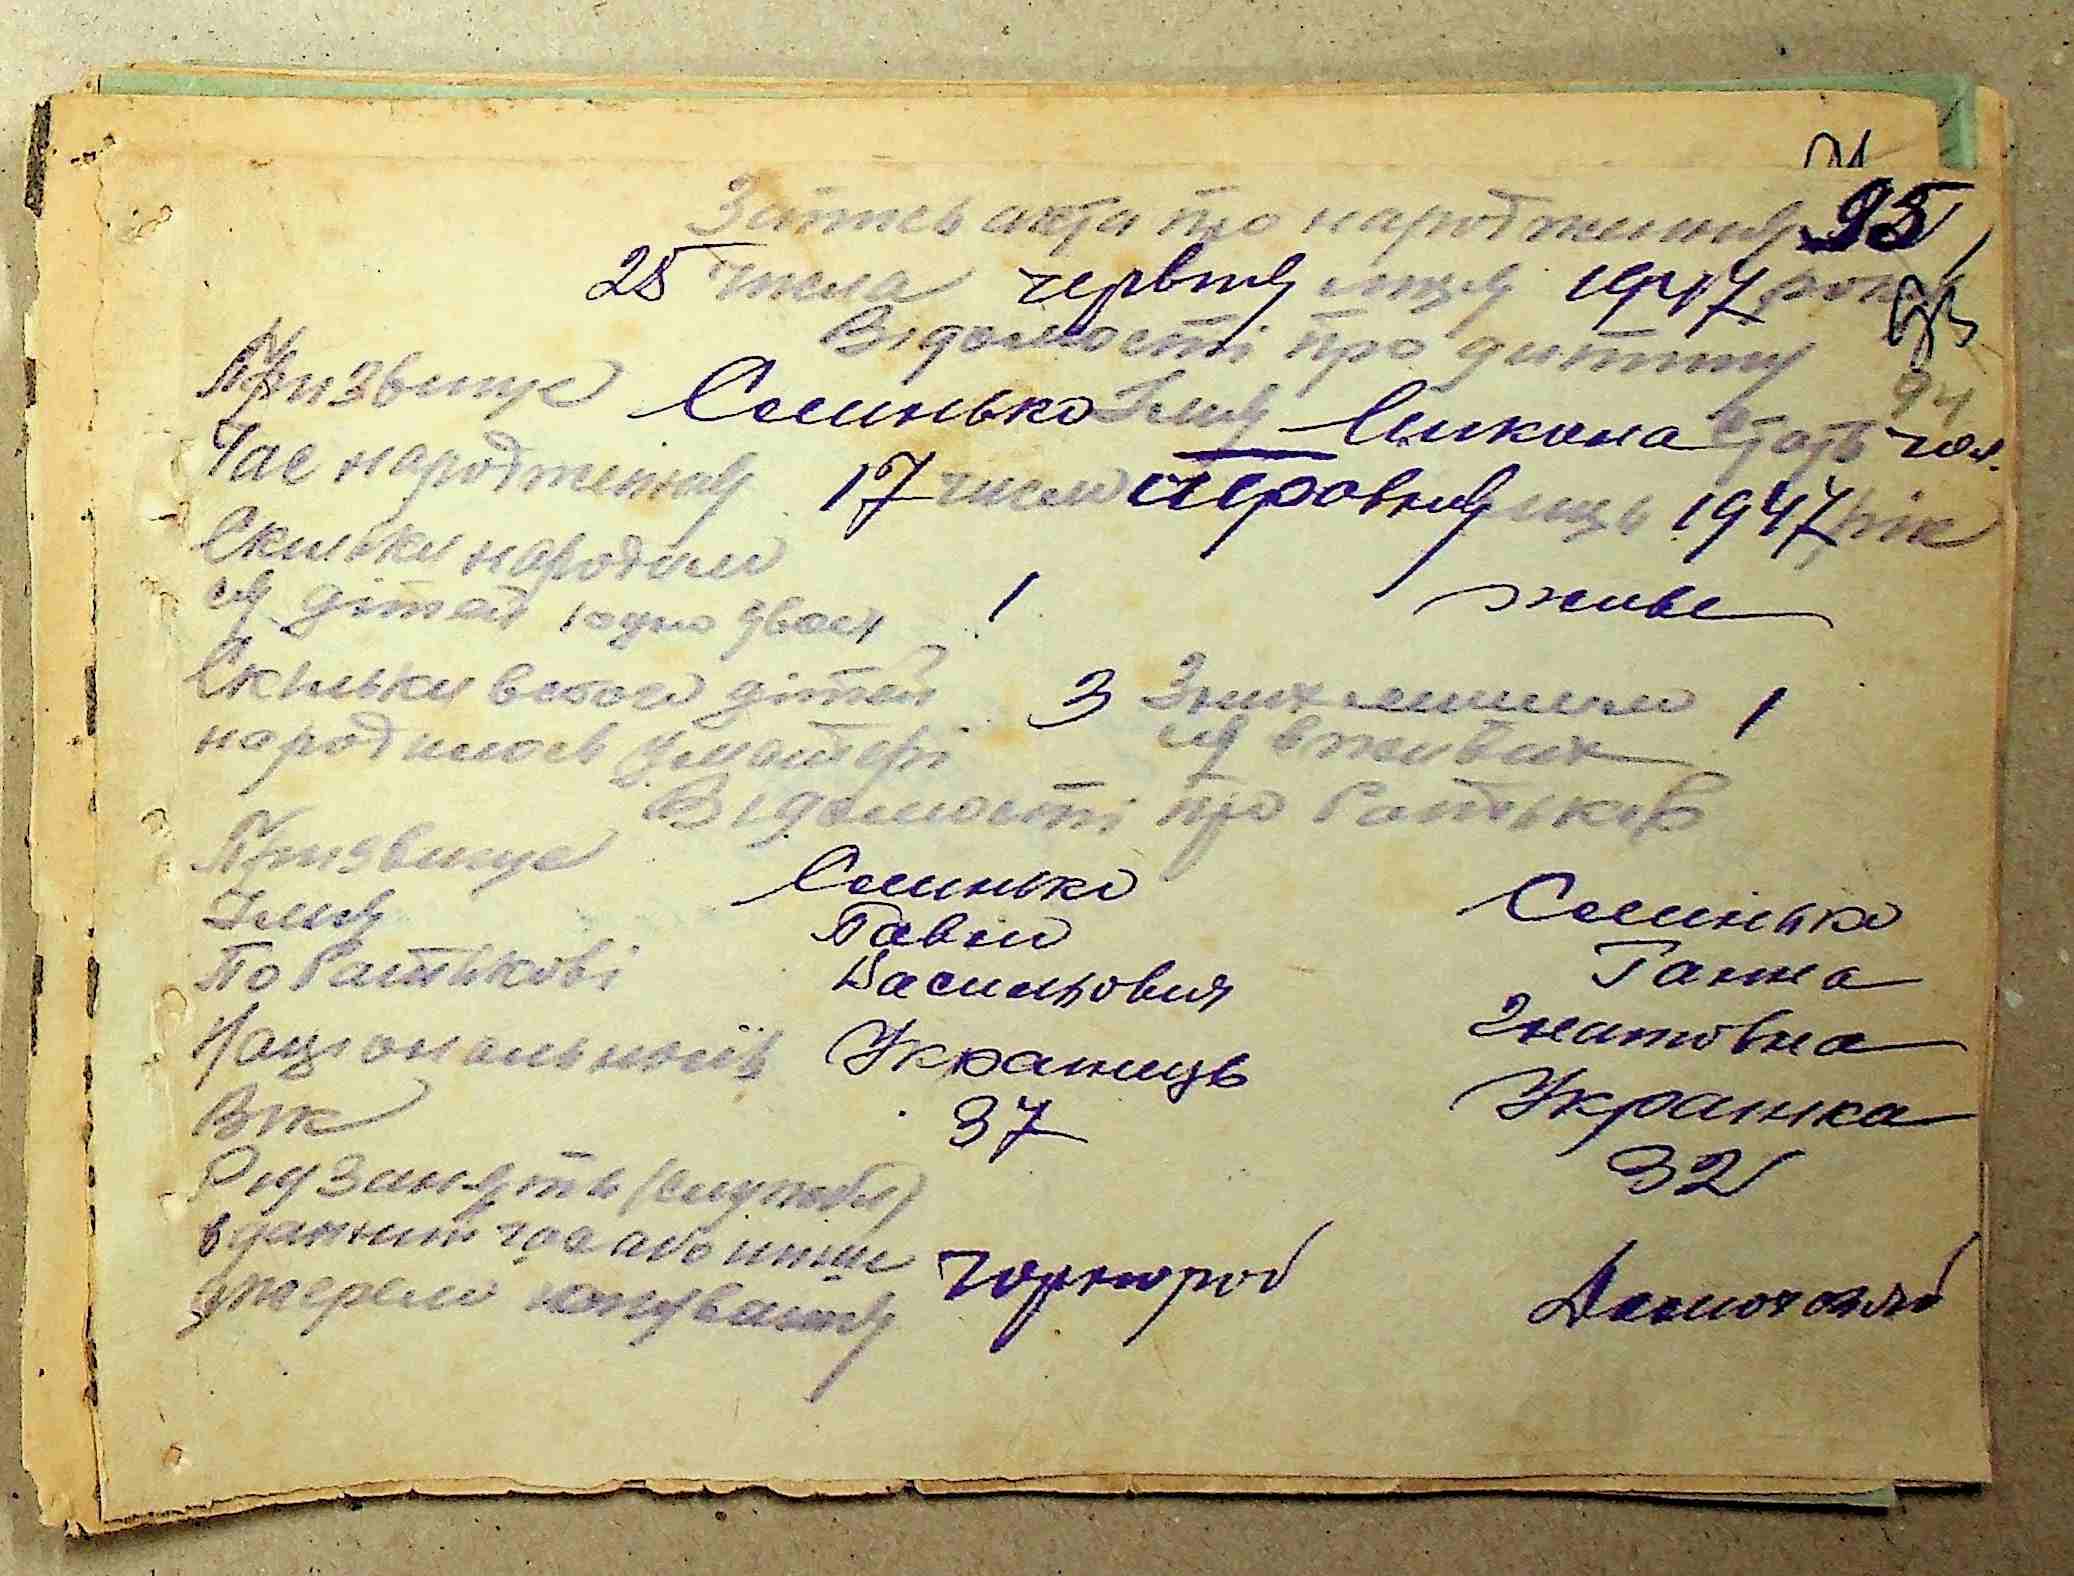 Запись акта про народження 95
25 числа червня м-ця 1947 року
Відомості про дитину 94
Призвище Семинько Імя Микола стать чол.
Час народження 17 число червня м-ць 1947 рік
Скильки народило
ся дітей 1 одно двоєх 1 живе
Скильки всього дітей 3 З них лишило 1
народилось у матері ся в живих
Відомості про батьків
Призвище Семинько Семінько
Імя Павло Ганна
По батькові Васильович Гнатовна
Національність Украинець Украинка
Вік 37 32
Рід занять (служба)
в даний час або инше
джерело існування Чорнороб Домохозяй